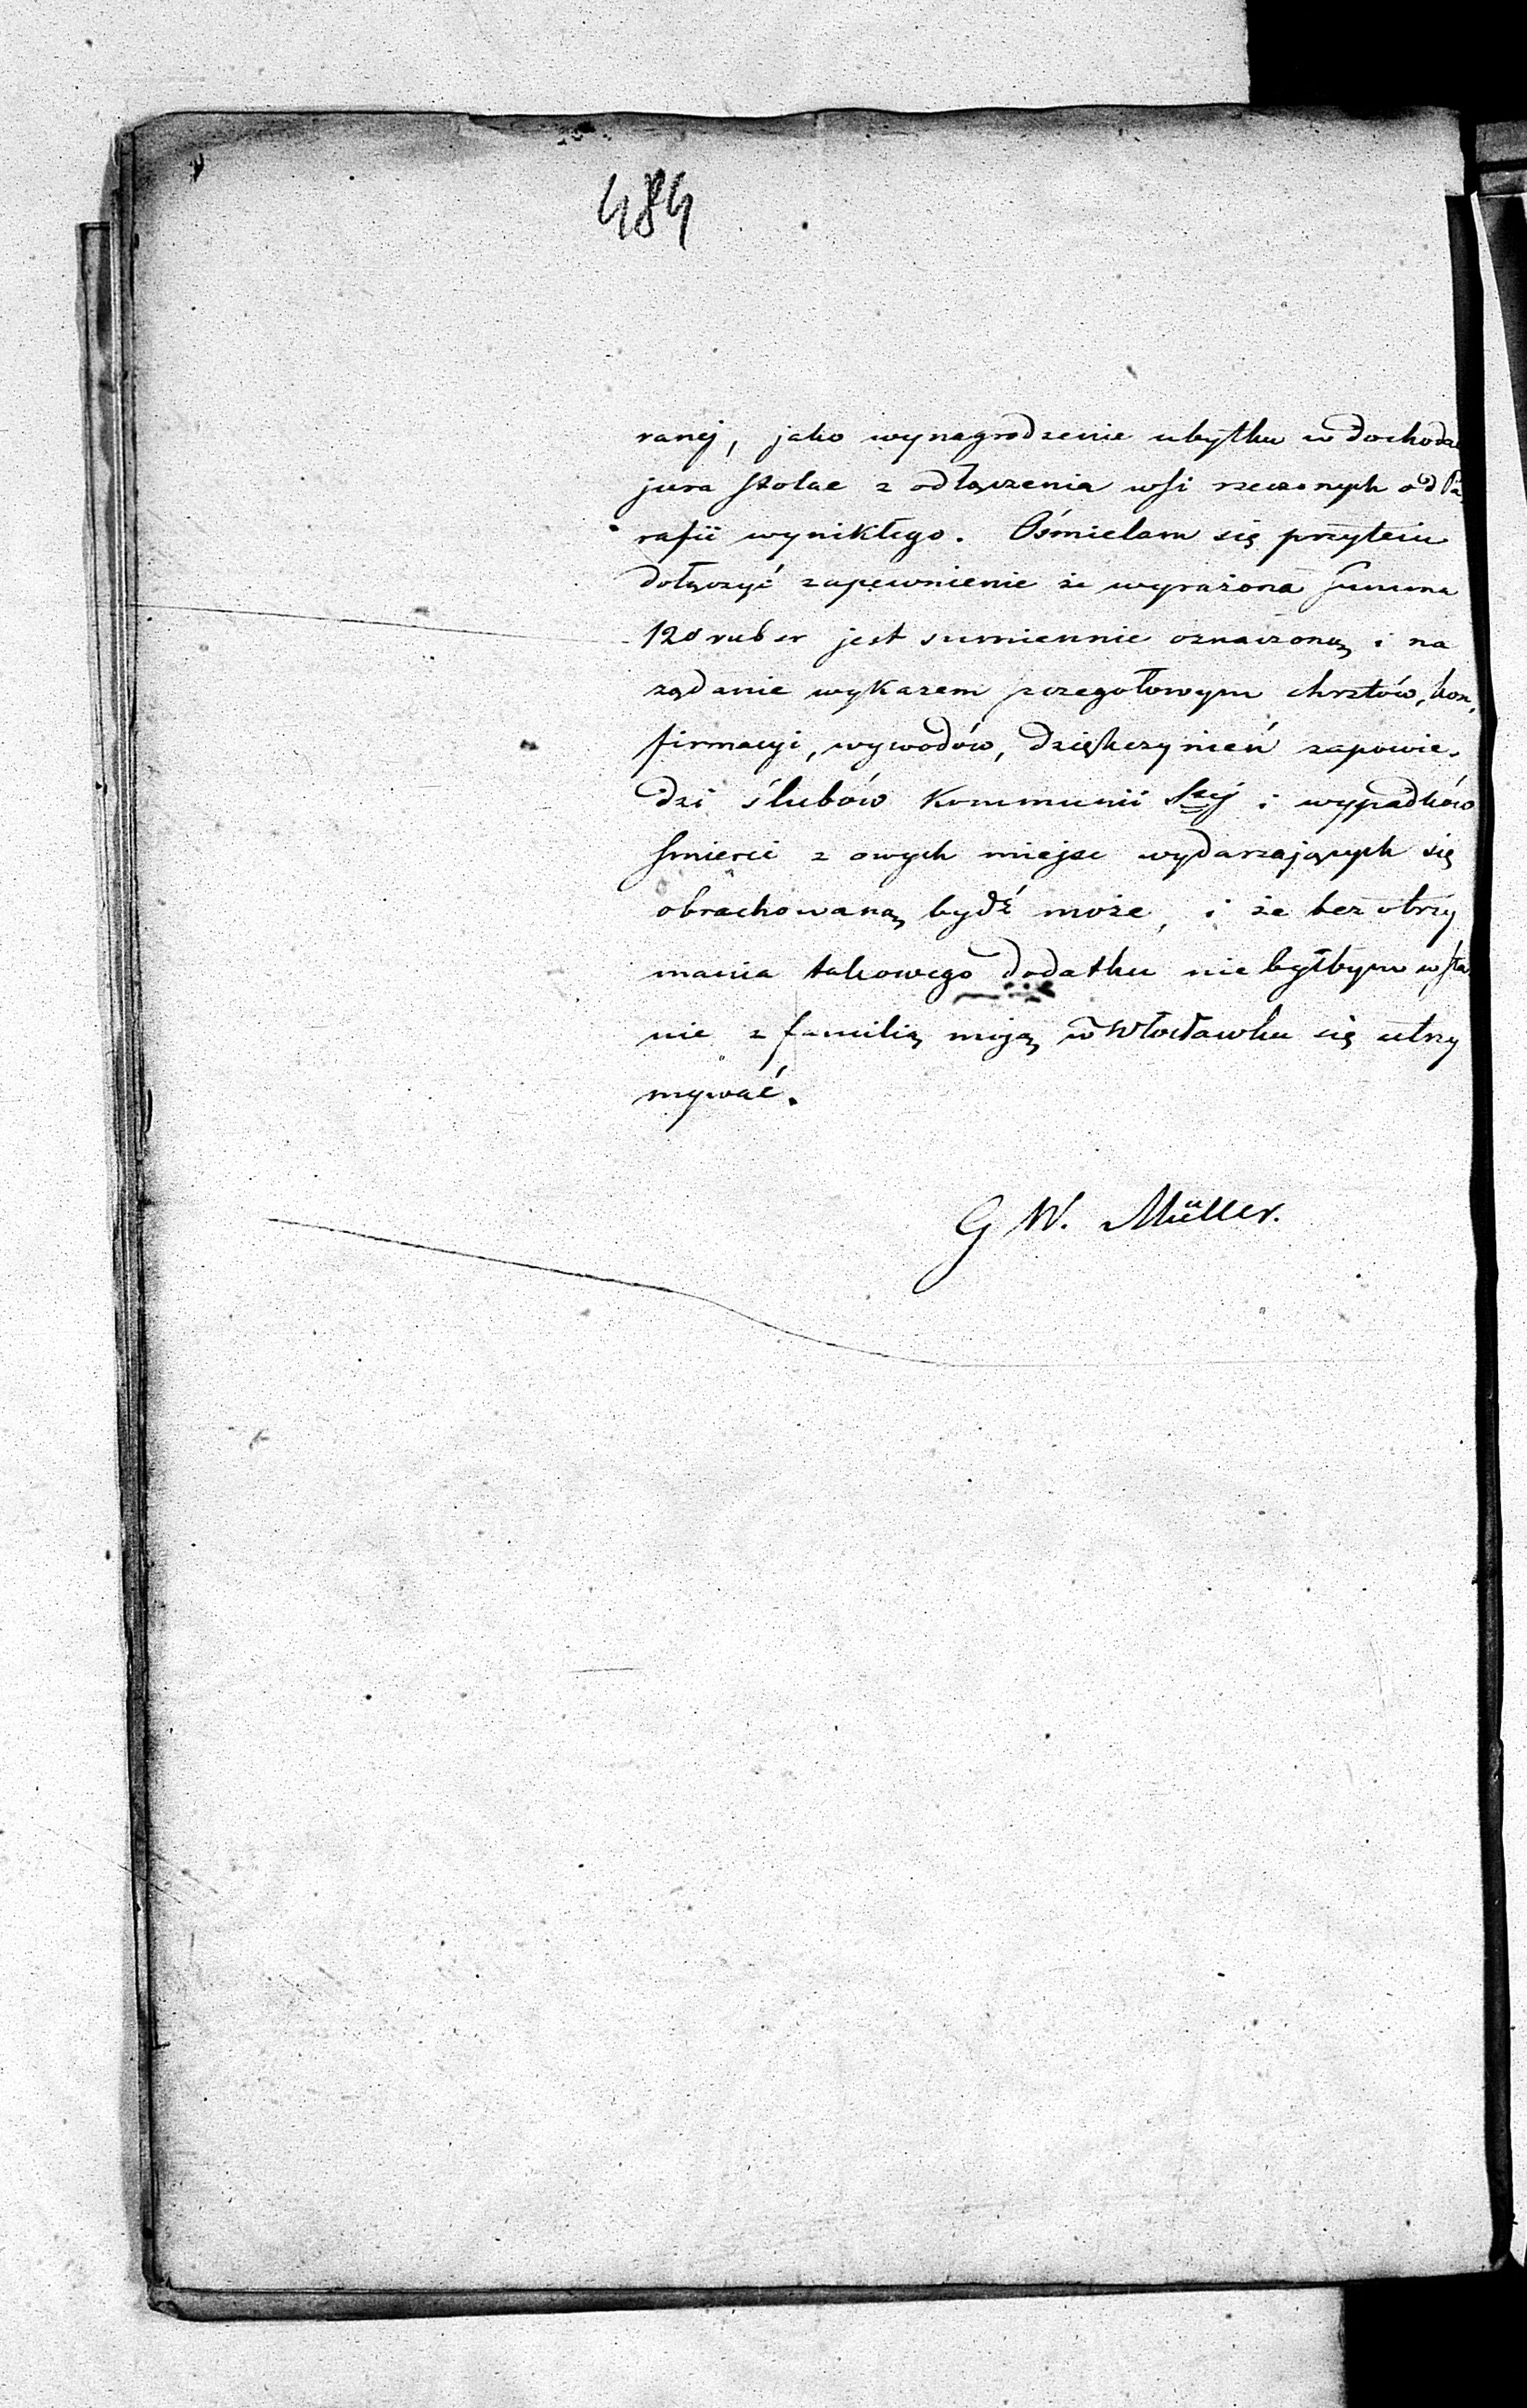 484
ranej, jako wynagrodzenie ubytku w dochodzie
jura stolae z odłączenia wsi rzeczonych od Pa,
rafii wynikłego. Ośmielam się przytem
dołączyć zapewnienie że wyrażona summa
120 rub sr jest sumiennie oznaczoną i na
rządanie wykazem szczegołowym chrztów, kon,
firmacyi, wywodów, dziękczynień zapowie,
dzi ślubów Kommunii Stej i wypadków
śmierci z owych miejsc wydarzających się
obrachowaną bydź może, i że bez otrzy
mania takowego dodatku nie byłbym w sta
nie z familią moją w Włocławku się utrzy
mywać.
G W. Müller.